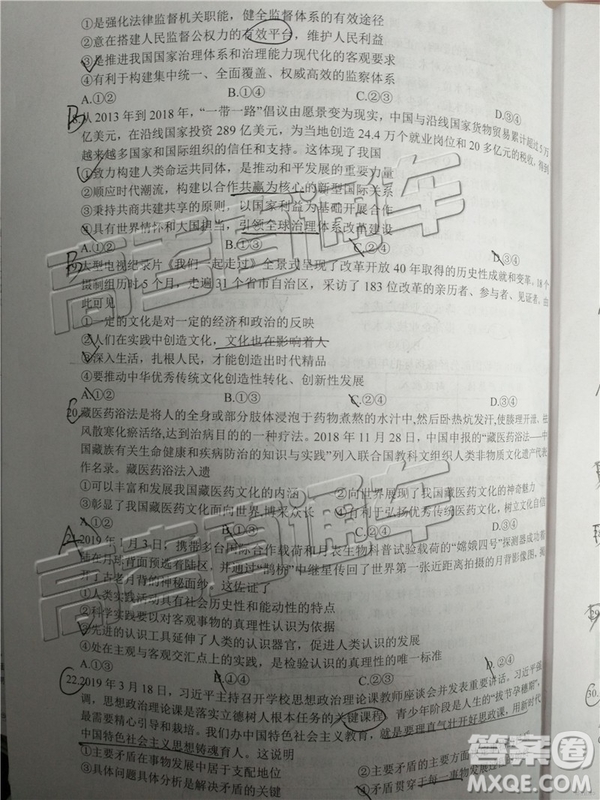 ①是强化法律监督机关职能，健全监督体系的有效途径
②意在搭建人民监督公权力的有效平台，维护人民利益
③是推进我国国家治理体系和治理能力现代化的客观要求
④有利于构建集中统一、全面覆盖、权威高效的监察体系
A.①② B.①④ C.②③ D.③④
B
从 2013 年到 2018 年，“一带一路”倡议由愿景变为现实，中国与沿线国家货物贸易累计超过 5 万
亿美元，在沿线国家投资 289 亿美元，为当地创造 24.4 万个就业岗位和 20 多亿元的税收，得到
越来越多国家和国际组织的信任和支持。这体现了我国
①致力构建人类命运共同体，是推动和平发展的重要力量
②顺应时代潮流，构建以合作共赢为核心的新型国际关系
③秉持共商共建共享的原则，以国家利益为基础开展合作
④具有世界情怀和大国担当，引领全球治理体系改革建设
A.①② B.①④ C.②③ D.③④
B
大型电视纪录片《我们一起走过》全景式呈现了改革开放 40 年取得的历史性成就和变革。18 个
摄制组历时 5 个月，走遍 31 个省市自治区，采访了 183 位改革的亲历者、参与者、见证者，由
此可见
①一定的文化是对一定的经济和政治的反映
②人们在实践中创造文化，文化也在影响着人
③深入生活，扎根人民，才能创造出时代精品
④要推动中华优秀传统文化创造性转化、创新性发展
A.①② B.①③ C.②④ D.③④
C
20.藏医药浴法是将人的全身或部分肢体浸泡于药物煮熬的水汁中,然后卧热炕发汗,使腠理开泄、祛
风散寒化瘀活络,达到治病目的的一种疗法。2018 年 11 月 28 日，中国申报的“藏医药浴法——中
国藏族有关生命健康和疾病防治的知识与实践”列入联合国教科文组织人类非物质文化遗产代表
作名录。藏医药浴法入遗
①可以丰富和发展我国藏医药文化的内涵 ②向世界展现了我国藏医药文化的神奇魅力
③彰显了我国藏医药文化面向世界,博采众长 ④有利于传承发展传统藏医药文化，树立文化自信
A.①② B.①③ C.②④ D.③④
A
2019 年 1 月 3 日，携带多台国际合作载荷和月表生物科普试验载荷的“嫦娥四号”探测器成功着
陆在月球背面预选着陆区，并通过“鹊桥”中继星传回了世界第一张近距离拍摄的月背影像图，揭
开了古老月背的神秘面纱，这佐证了
①实践活动具有社会历史性和能动性的特点
②科学实践要以对客观事物的真理性认识为依据
③先进的认识工具延伸了人类的认识器官，促进人类认识的发展
④处在主观与客观交汇点上的实践，是检验认识的真理性的唯一标准
A.①③ B.①④ C.②③ D.②④
22.2019 年 3 月 18 日，习近平主持召开学校思想政治理论课教师座谈会并发表重要讲话，
调，思想政治理论课是落实立德树人根本任务的关键课程 青少年阶段是人生的“拔节孕穗期”，
最需要精心引导和栽培。我们办中国特色社会主义教育，就是要理直气壮开好思政课，用新时代
中国特色社会主义思想铸魂育人。这说明
①主要矛盾在事物发展中居于支配地位 ②主要矛盾的主要方面
③具体问题具体分析是解决矛盾的关键 ④矛盾贯穿于每一事物发展
高考直通车
高考直通车
答案圈
MXQE.COM